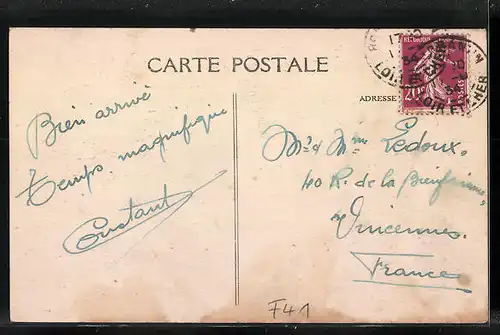 CARTE POSTALE
ADRESSE
Bien arrivé
temps magnifique
Constant
Mr & Mme Ledoux.
40 R. de la Bienfaisance,
Vincennes.
France
F41
20c
LOIR-ET-CHER